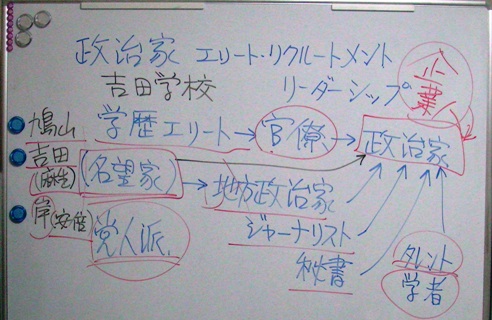 政治家 エリート・リクルートメント
吉田学校 リーダーシップ
企業人
鳩山 学歴エリート→官僚→政治家
吉田(麻生) (名望家)→地方政治家
岸(安倍) 党人派 ジャーナリスト
秘書
タレント
学者